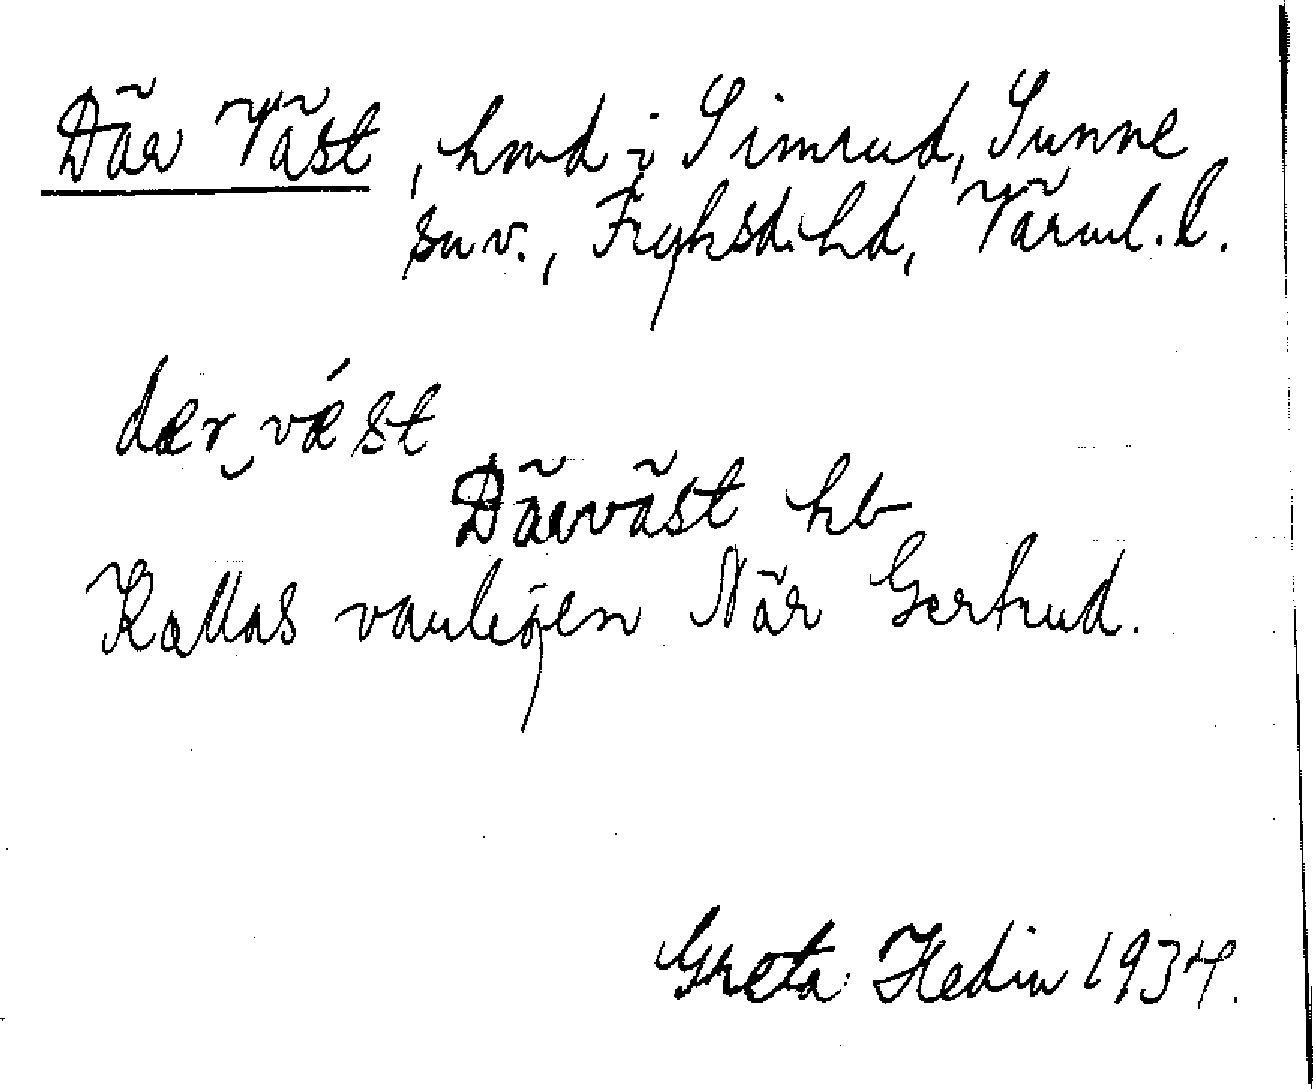 Där Väst, hmd i Simrud, Sunne
snv., Fryksd. hd, Värml. l.
dær‿vǽst
Därväst hb
Kallas vanligen När Gertrud.
Greta Hedin 1934.